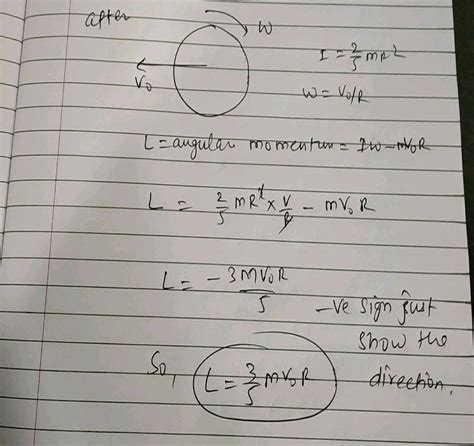 after
ω
V₀
I = 2/5 mR²
ω = V₀/R
L = angular momentum = Iω - mV₀R
L = 2/5 mR² × V/R - mV₀R
L = -3MV₀R/5
-ve sign just
show the
direction.
So, L = 3/5 mV₀R